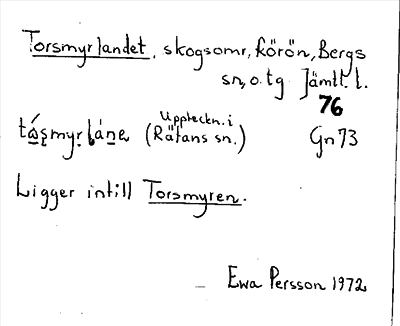 Torsmyrlandet, skogsomr, Körön, Bergs
sn, o. tg Jämtl. l.
76
Uppteckn. i
tå̱s̱myrḷáṉe (Rätans sn.) Gn 73
Ligger intill Torsmyren.
Ewa Persson 1972